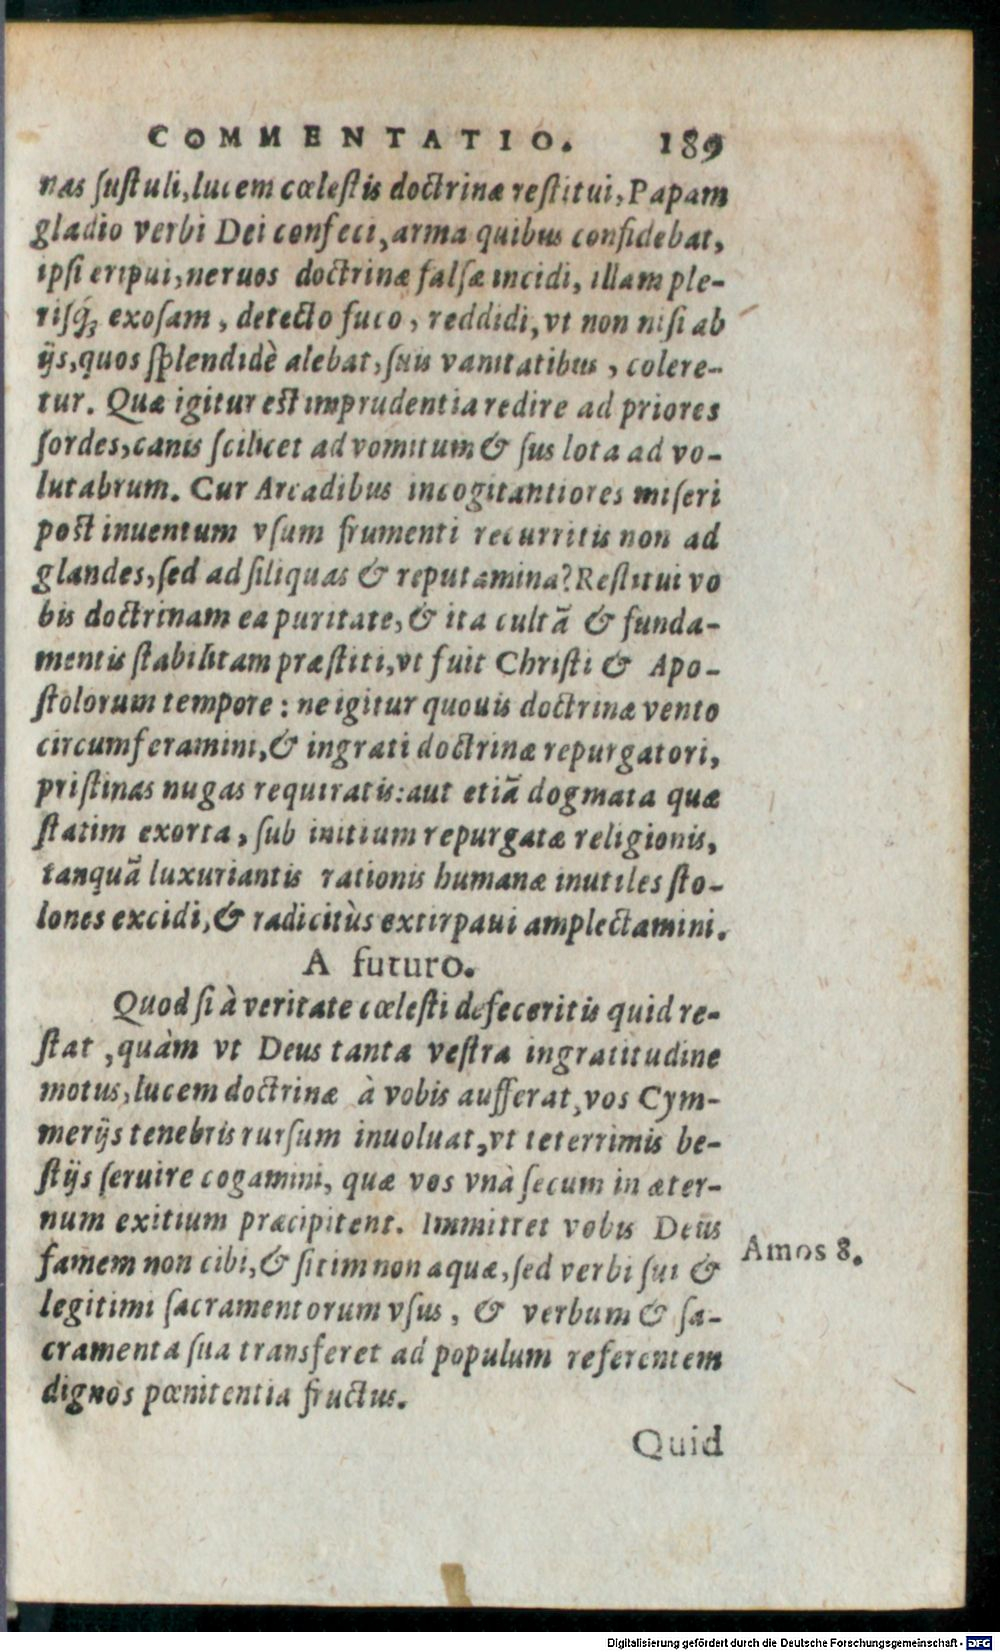 COMMENTATIO. 189
nas ſuſtuli, lucem cœleſtis doctrinæ reſtitui, Papam
gladio verbi Dei confeci, arma quibus confidebat,
ipſi eripui, neruos doctrinæ falſæ incidi, illam ple-
riſq́; exoſam, detecto fuco, reddidi, vt non niſi ab
ijs, quos ſplendidè alebat, ſuis vanitatibus, colere-
tur. Quæ igitur est imprudentia redire ad priores
ſordes, canis ſcilicet ad vomitum & ſus lota ad vo-
lutabrum. Cur Arcadibus incogitantiores miſeri
post inuentum vſum frumenti recurritis non ad
glandes, ſed ad ſiliquas & reputamina? Reſtitui vo
bis doctrinam ea puritate, & ita cultã & funda-
mentis ſtabilitam præſtiti, vt fuit Chriſti & Apo-
ſtolorum tempore: ne igitur quouis doctrinæ vento
circumferamini, & ingrati doctrinæ repurgatori,
priſtinas nugas requiratis: aut etiã dogmata quæ
ſtatim exorta, ſub initium repurgatæ religionis,
tanquã luxuriantis rationis humanæ inutiles ſto-
lones excidi, & radicitùs extirpaui amplectamini.
A futuro.
Quod ſi à veritate cœleſti defeceritis quid re-
ſtat, quàm vt Deus tanta veſtra ingratitudine
motus, lucem doctrinæ à vobis aufferat, vos Cym-
merijs tenebris rurſum inuoluat, vt teterrimis be-
ſtijs ſeruire cogamini, quæ vos vnà ſecum in æter-
num exitium præcipitent. Immittet vobis Deus
famem non cibi, & ſitim non aquæ, ſed verbi ſui &
legitimi ſacramentorum vſus, & verbum & ſa-
cramenta ſua transferet ad populum referentem
dignos pœnitentia fructus.
Amos 8.
Quid
Digitalisierung gefördert durch die Deutsche Forschungsgemeinschaft - DFG